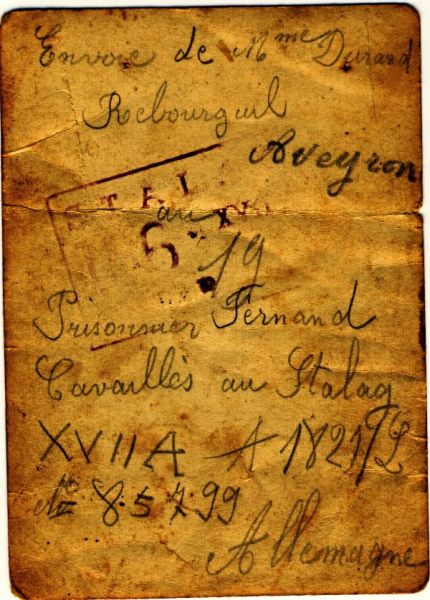 Envoie de Mme Durand
Rebourguil
Aveyron
au
19
Prisonnier Fernand
Cavaillès au Stalag
XVII A A 1821/L
No 85799
Allemagne